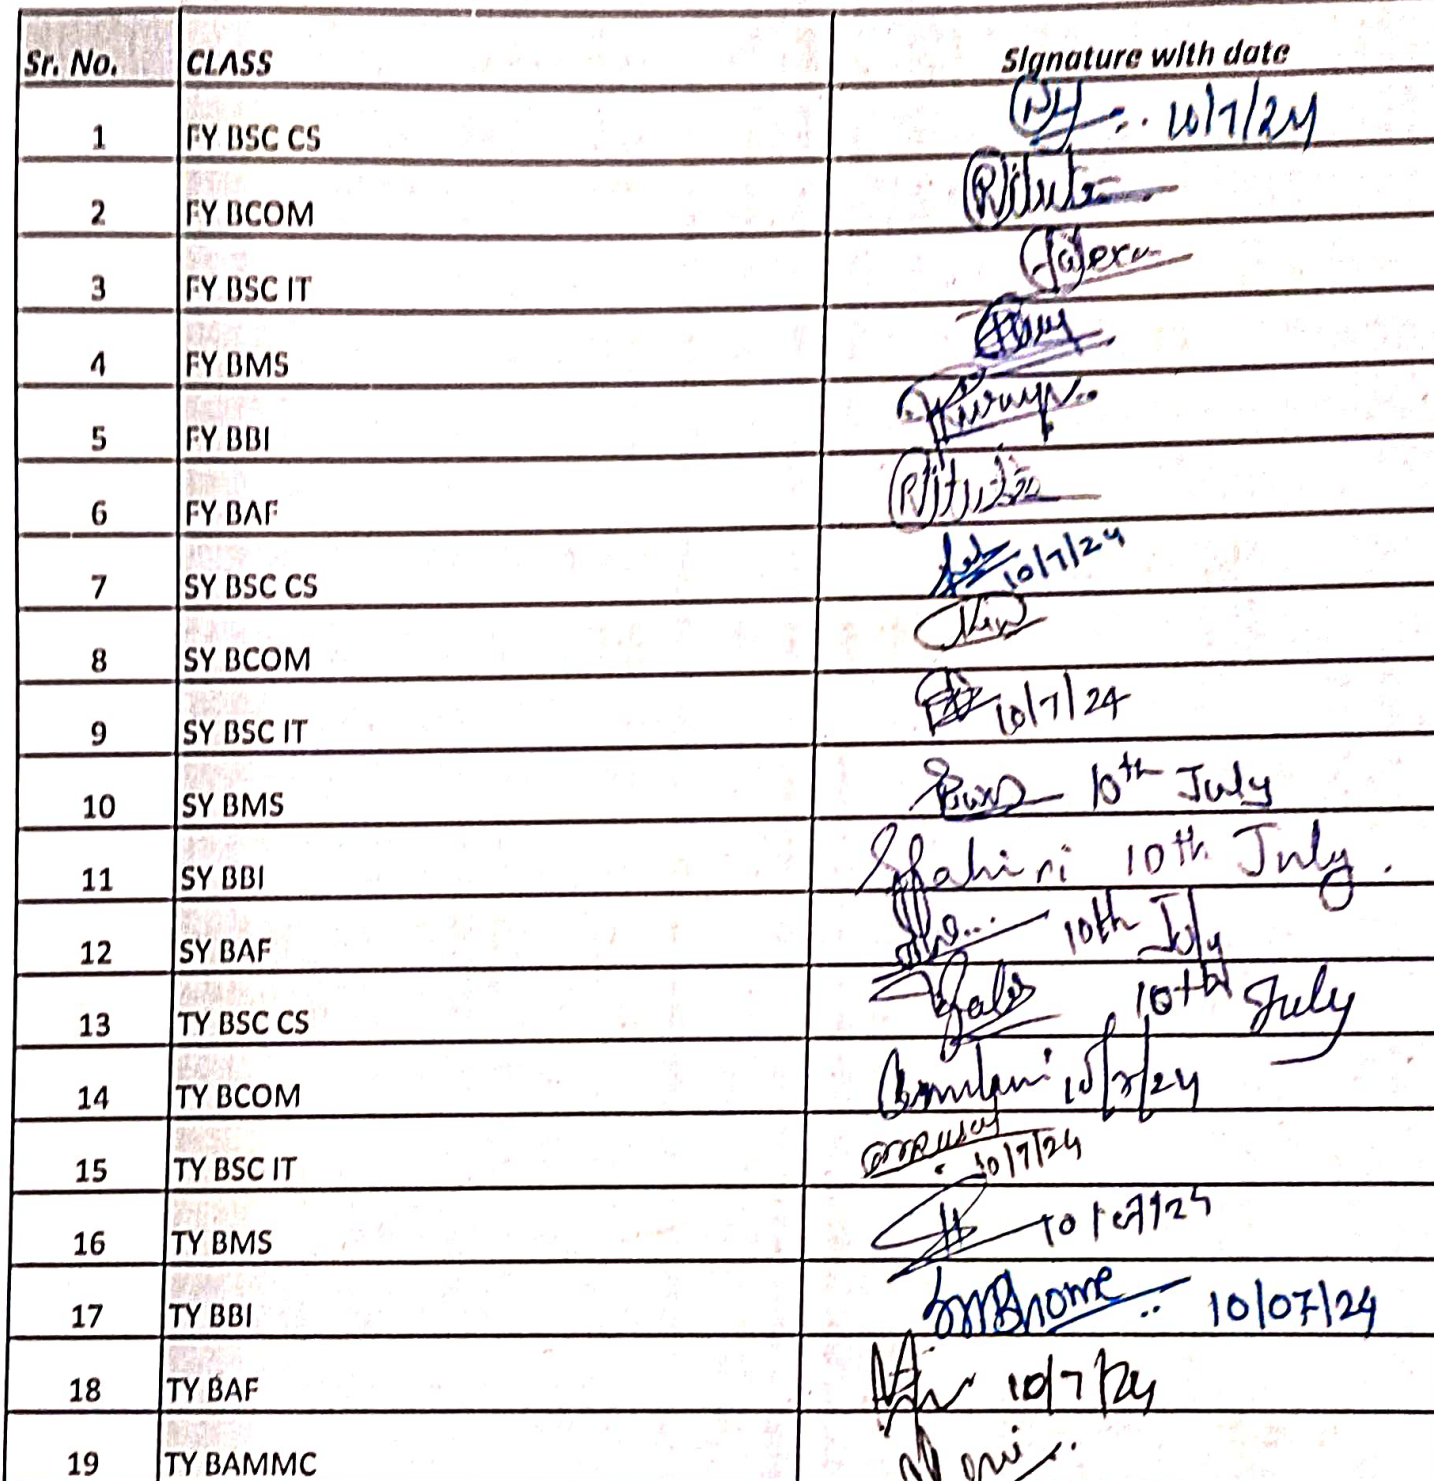 Sr. No. CLASS Signature with date
1 FY BSC CS 10/7/24
2 FY BCOM
3 FY BSC IT
4 FY BMS
5 FY BBI
6 FY BAF
7 SY BSC CS 10/7/24
8 SY BCOM
9 SY BSC IT 10/7/24
10 SY BMS 10th July
11 SY BBI 10th July.
12 SY BAF 10th July
13 TY BSC CS 10th July
14 TY BCOM 10/7/24
15 TY BSC IT 10/7/24
16 TY BMS 10/07/24
17 TY BBI 10/07/24
18 TY BAF 10/7/24
19 TY BAMMC